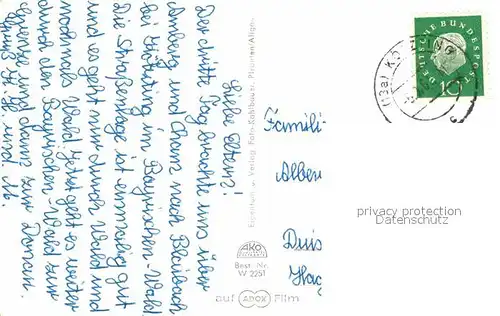 Liebe Eltern!
Der dritte Tag brachte uns über
Amberg und Cham nach Blaibach
bei Kötzting im Bayrischen-Wald.
Die Straßenlage ist einmalig gut
und es geht nur durch Wald und
nochmals Wald. Jetzt geht es weiter
durch den Bayrischen-Wald zur
Grenze und dann zur Donau.
Gruß H. H. und M.
Eigentum u. Verlag Foto-Kohlbauer, Pfronten/Allgäu
AKO
Best. Nr.
W 2251
auf ADOX Film
Famili
Alber
Duis
Hag
DEUTSCHE BUNDESPOST
10
(13a) KÖTZTING
privacy protection
Datenschutz